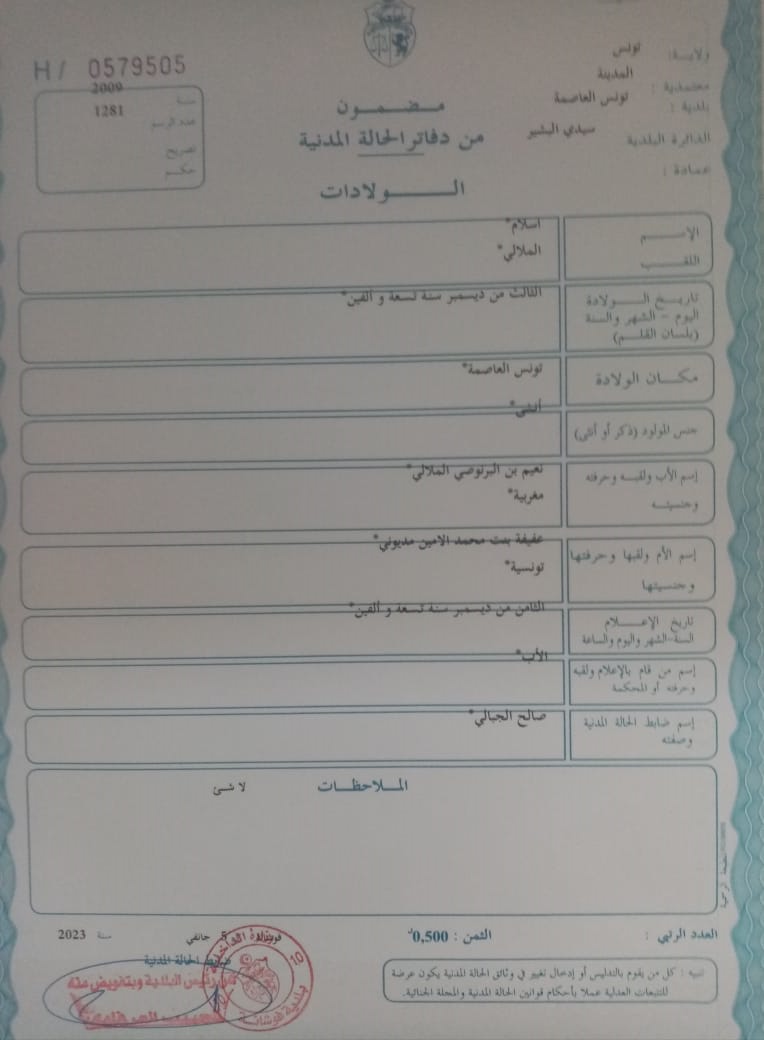 ولاية: تونس
معتمدية : المدينة
بلدية : تونس العاصمة
الدائرة البلدية سيدي البشير
عمادة :
H/ 0579505
سنة 2009
عدد الرسم 1281
تصريح
حكم
مضمون
من دفاتر الحالة المدنية
الولادات
الإسم اسلام*
اللقب الملالي*
تاريخ الولادة الثالث من ديسمبر سنة تسعة و ألفين*
اليوم - الشهر والسنة
(بلسان القلم)
مكان الولادة تونس العاصمة*
جنس المولود (ذكر أو أنثى) أنثى*
إسم الأب ولقبه وحرفته نعيم بن البرنوصي الملالي*
وجنسيته مغربية*
إسم الأم ولقبها وحرفتها عفيفة بنت محمد الامين مديوني*
وجنسيتها تونسية*
تاريخ الإعلام الثامن من ديسمبر سنة تسعة و ألفين*
السنة-الشهر واليوم والساعة
إسم من قام بالإعلام ولقبه الأب*
وحرفته أو المحكمة
إسم ضابط الحالة المدنية صالح الجبالي*
وصفته
الملاحظات لا شئ
المطبعة الرسمية
العدد الرتبي : الثمن : 0,500د
5 جانفي سنة 2023
ضابط الحالة المدنية
عن رئيس البلدية وبتفويض منه
وزارة الداخلية
10
بلدية فوشانة
تنبيه : كل من يقوم بالتدليس أو إدخال تغيير في وثائق الحالة المدنية يكون عرضة
للتتبعات العدلية عملا بأحكام قوانين الحالة المدنية والمجلة الجنائية.